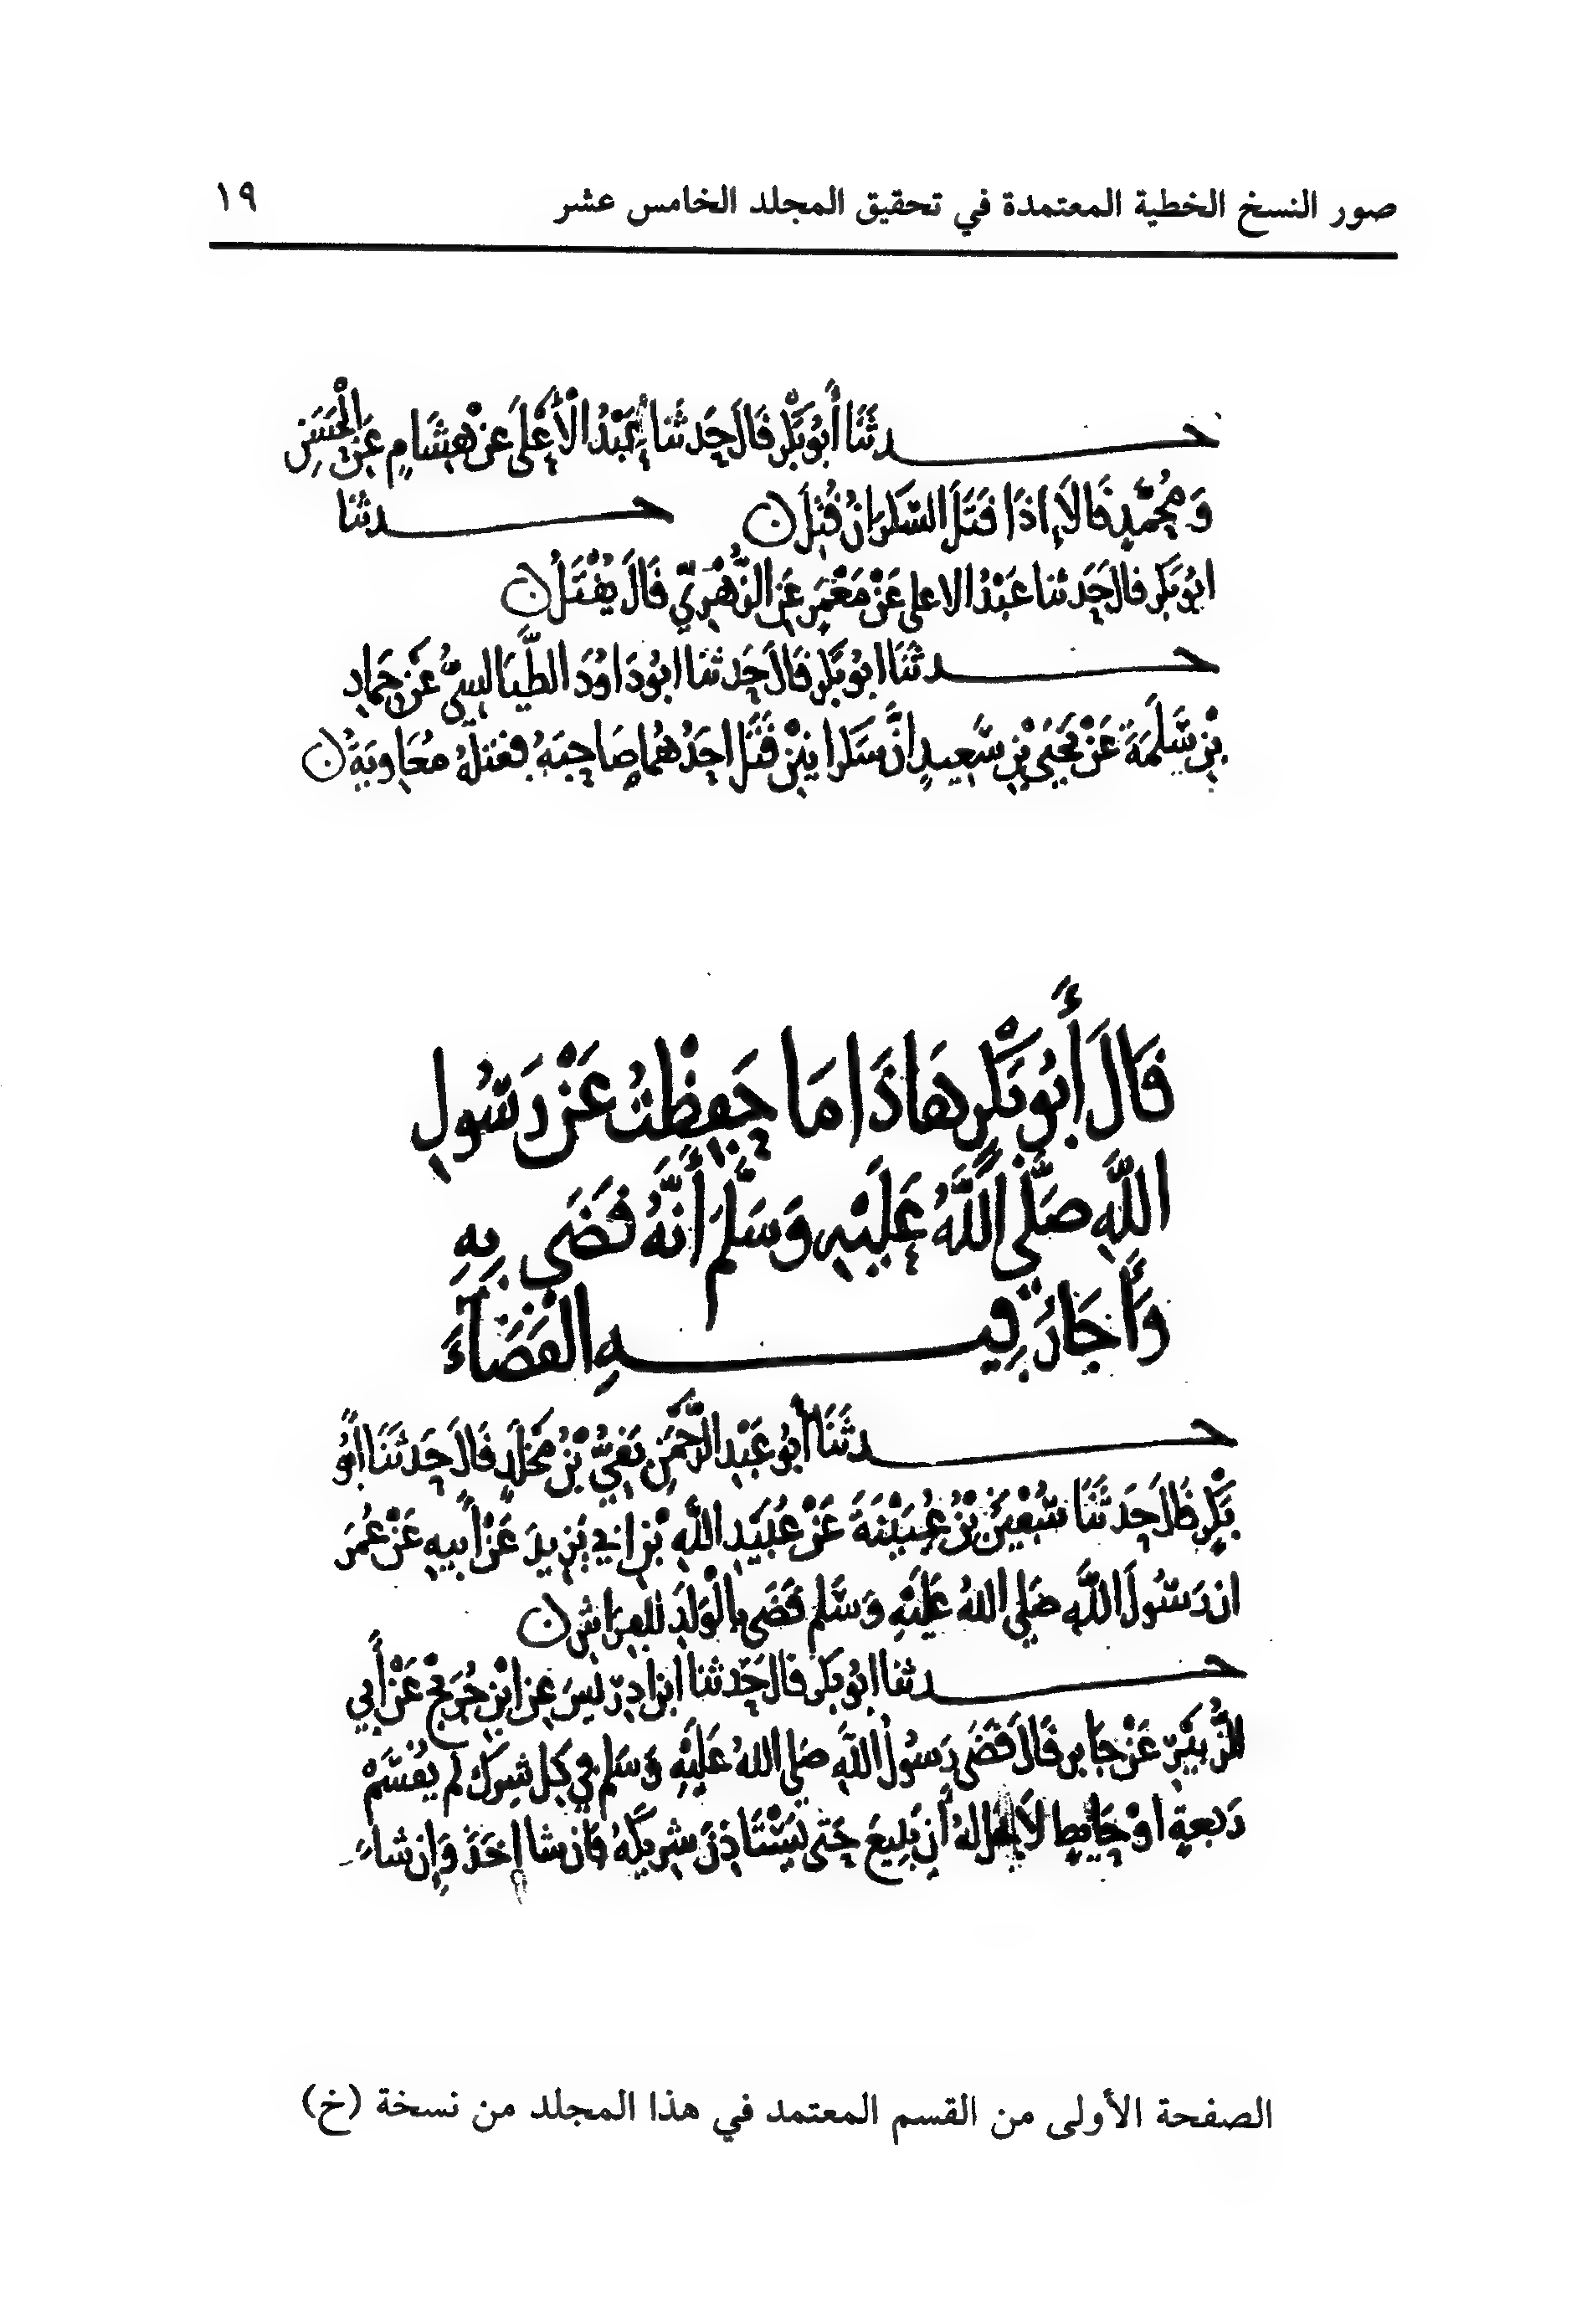 صور النسخ الخطية المعتمدة في تحقيق المجلد الخامس عشر ١٩
حـــدثَنَا أَبُو بَكْرٍ قَالَ حَدثَنَا عَبْدُ الْأَعْلَى عَنْ هِشَامٍ عَنِ الْحَسَنِ
وَمُحَمَّدٍ قَالَا إِذَا قَتَلَ السَّكْرَانُ قُتِلَ ن حـــدثنا
ابُو بَكر قال حَدثنا عَبْدُ الاعلى عَنْ مَعْمَرٍ عَنِ الزُّهْرِيِّ قَالَ يُقْتَلُ ن
حـــدثَنَا ابُو بَكْرٍ قَالَ حَدثنا ابُو دَاوُدَ الطَّيَالِسِيُّ عَنْ حَمادِ
بْنِ سَلَمَةَ عَنْ يَحْيَى بْنِ سَعِيدٍ انَّ سَكرانَيْنِ قَتَلَ احَدُهُمَا صَاحِبَهُ فقتلَهُ مُعَاوِيَةُ ن
قَالَ أَبُو بَكْرٍ هَاذَا مَا حَفِظْتُ عَنْ رَسُولِ
اللَّهِ صَلَّى اللَّهُ عَلَيْهِ وَسَلَّمَ أَنَّهُ قَضَى بِهِ
وَأَجَازَ فِيـــهِ الْقَضَاءَ
حـــدثَنَا أَبُو عَبْدِ الرَّحْمَنِ بَقِيُّ بْنُ مَخْلَدٍ قَالَ حَدثَنَا أَبُو
بَكْرٍ قَالَ حَدثَنَا سُفْيَنُ بْنُ عُيَيْنَةَ عَنْ عُبَيْدِ اللَّهِ بْنِ ابي يَزِيدَ عَنْ أَبِيهِ عَنْ عُمَرَ
ان رَسُولَ اللَّهِ صَلى اللهُ عَلَيْهِ وَسَلم قَضَى بِالْوَلَدِ للفِرَاشِ ن
حـــدثنا ابُو بَكر قالَ حَدثنا ابن ادِريسَ عن ابْنِ جُرَيْجٍ عَنْ أَبِي
الزُّبَيْرِ عَنْ جَابر قَالَ قَضَى رَسُولُ اللَّهِ صَلى اللهُ عَلَيْهِ وَسَلم فِي كل شِرْك لم يُقْسَمْ
رَبعةٍ اوْ حَايطٍ لَا يحل لهُ أَن يَبِيعَ حَتى يَسْتَاذِنَ شرِيكَهُ فَان شا اخَذَ وَان شاءَ
الصفحة الأولى من القسم المعتمد في هذا المجلد من نسخة (خ)